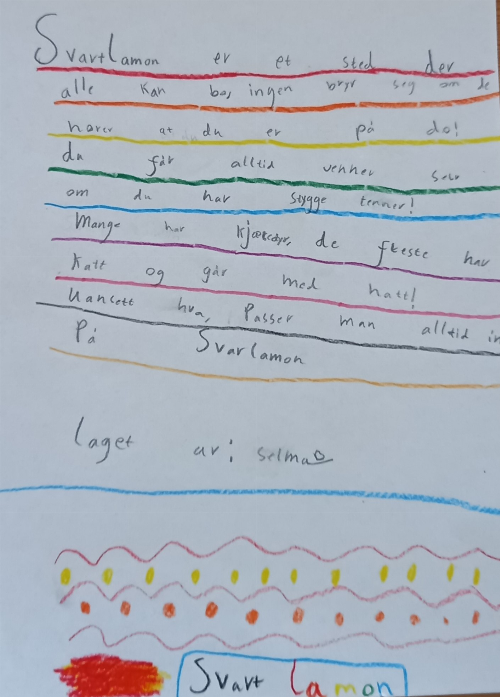 Svartlamon er et sted der
alle kan bo, ingen bryr seg om de
hører at du er på do!
du får alltid venner selv
om du har stygge tenner!
Mange har kjæledyr, de fleste har
katt og går med hatt!
Uansett hva, Passer man alltid in
På Svarlamon
laget av: selma
Svart lamon